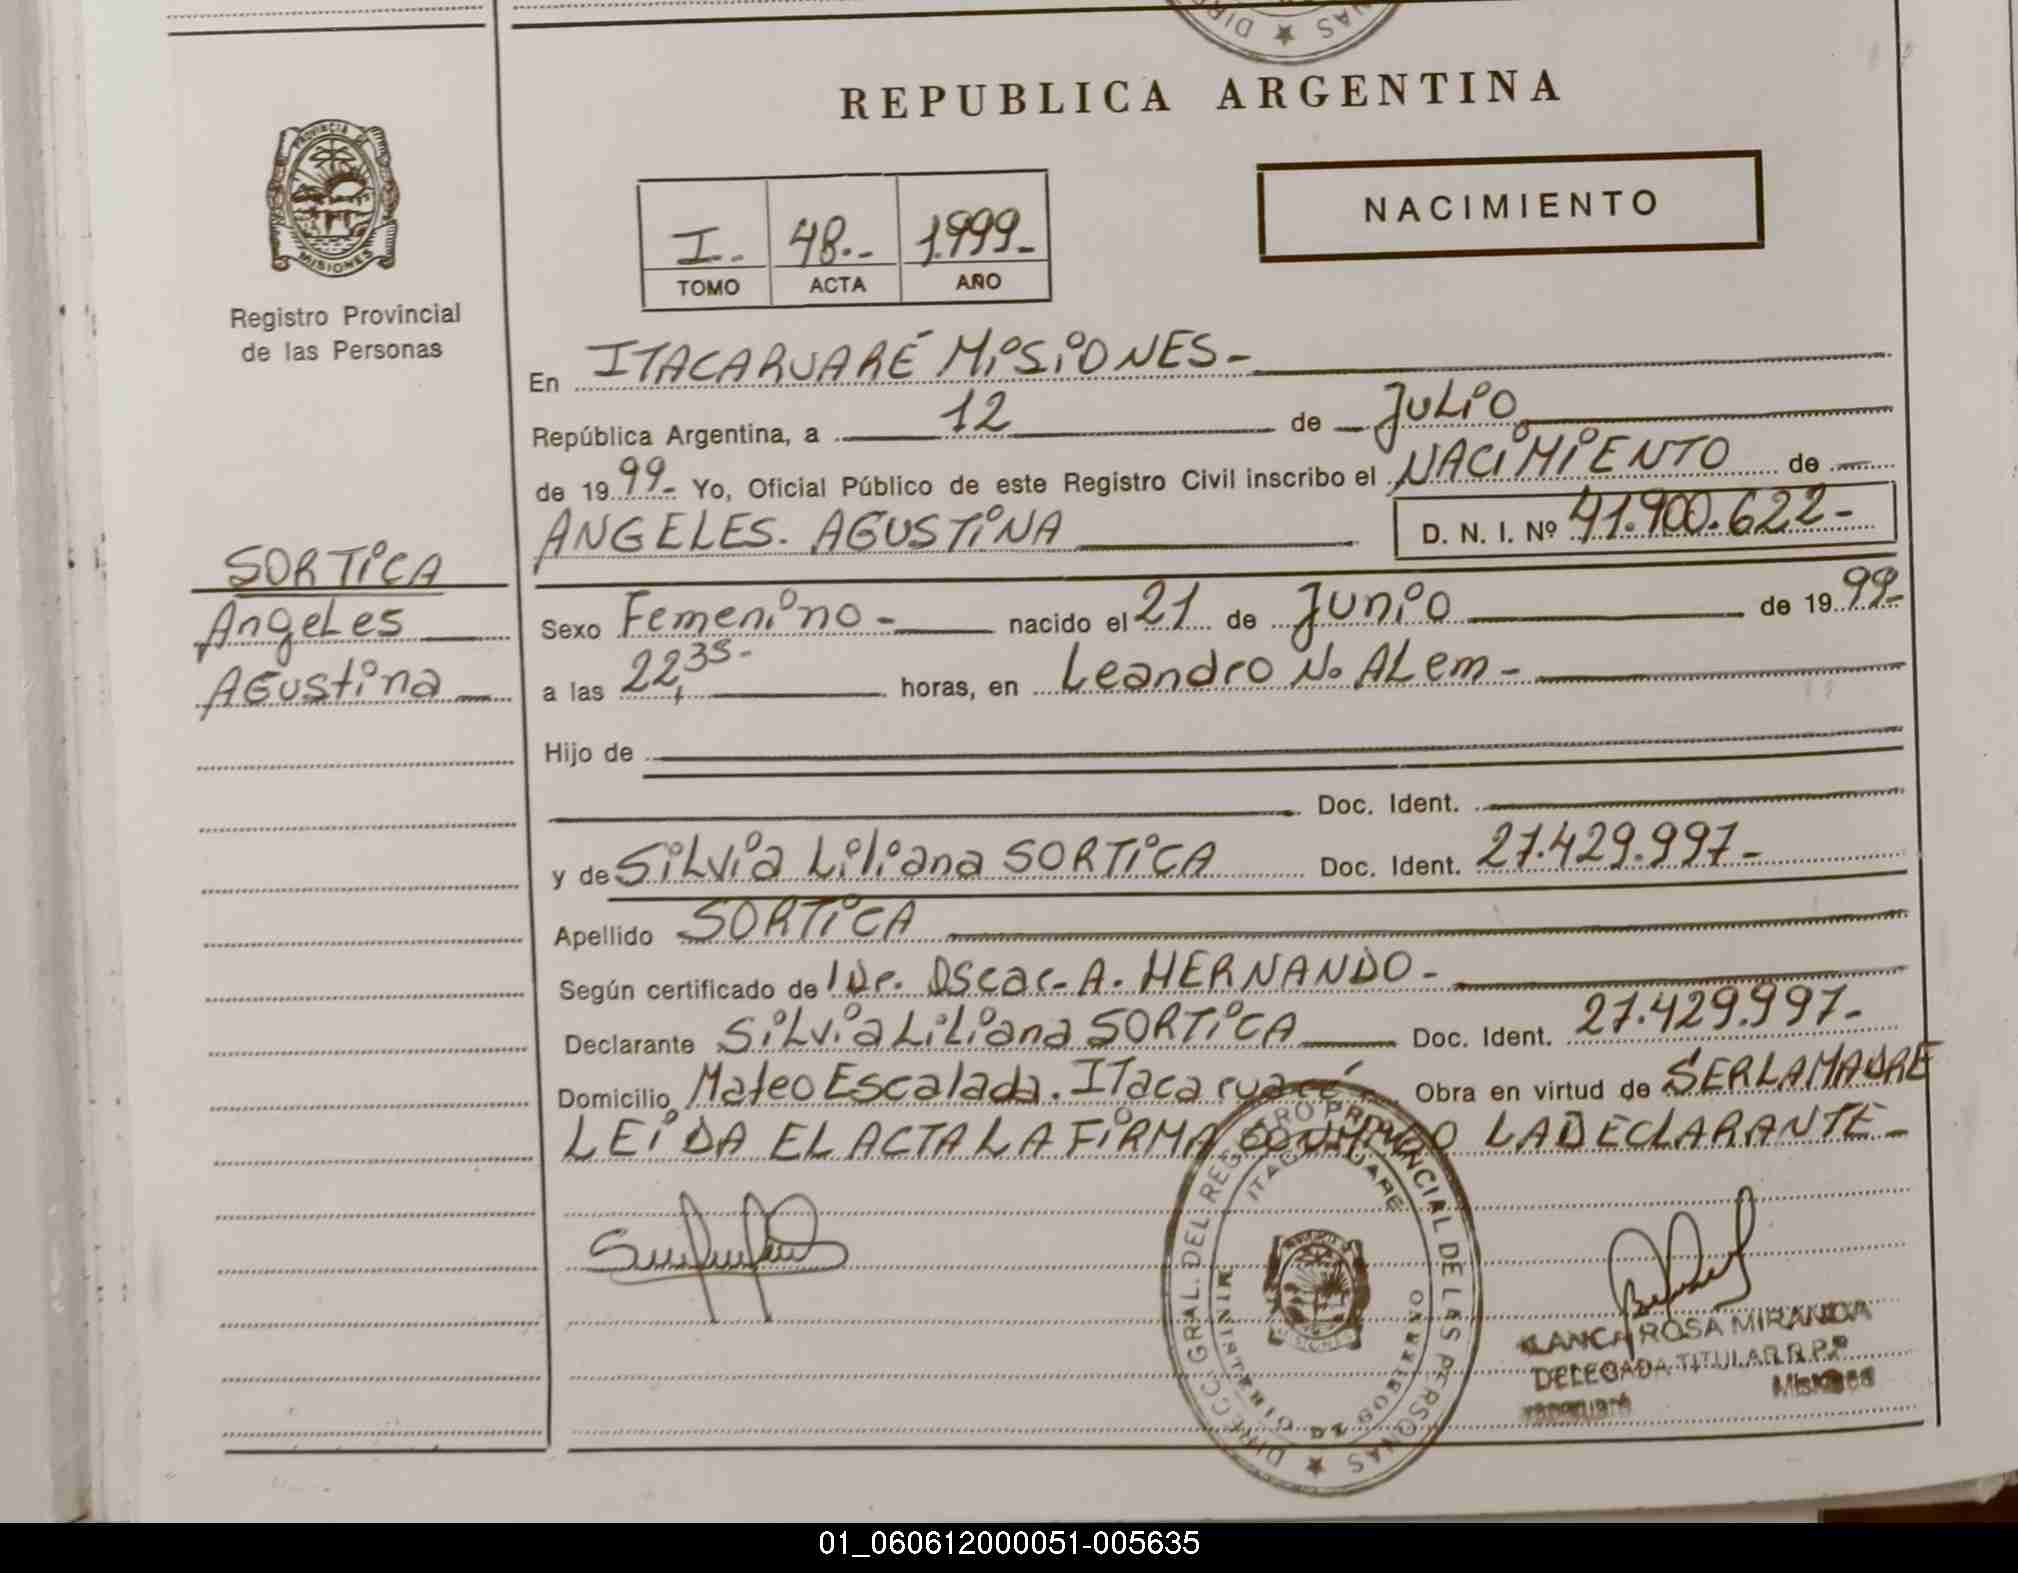 DIR NAS
REPUBLICA ARGENTINA
PROVINCIA DE MISIONES
Registro Provincial
de las Personas
I.- 48.- 1.999-
TOMO ACTA AÑO
NACIMIENTO
En ITACARUARÉ MISIONES-
República Argentina, a 12 de JULIO
de 19 99- Yo, Oficial Público de este Registro Civil inscribo el NACIMIENTO de
ANGELES. AGUSTINA D. N. I. Nº 41.900.622-
SORTICA
Angeles
Agustina
Sexo Femenino- nacido el 21 de Junio de 19 99-
a las 22,35- horas, en Leandro N. Alem-
Hijo de
Doc. Ident.
y de Silvia Liliana SORTICA Doc. Ident. 27.429.997-
Apellido SORTICA
Según certificado del Dr. Oscar A. HERNANDO-
Declarante Silvia Liliana SORTICA Doc. Ident. 27.429.997-
Domicilio Mateo Escalada. Itacaruaré Obra en virtud de SER LA MADRE
LEIDA EL ACTA LA FIRMA CONMIGO LA DECLARANTE-
DIRECC. GRAL. DEL REGISTRO PROVINCIAL DE LAS PERSONAS
ITACARUARE
MINISTERIO DE GOBIERNO
BLANCA ROSA MIRANDA
DELEGADA TITULAR R.P.P
Itacaruaré Misiones
01_060612000051-005635